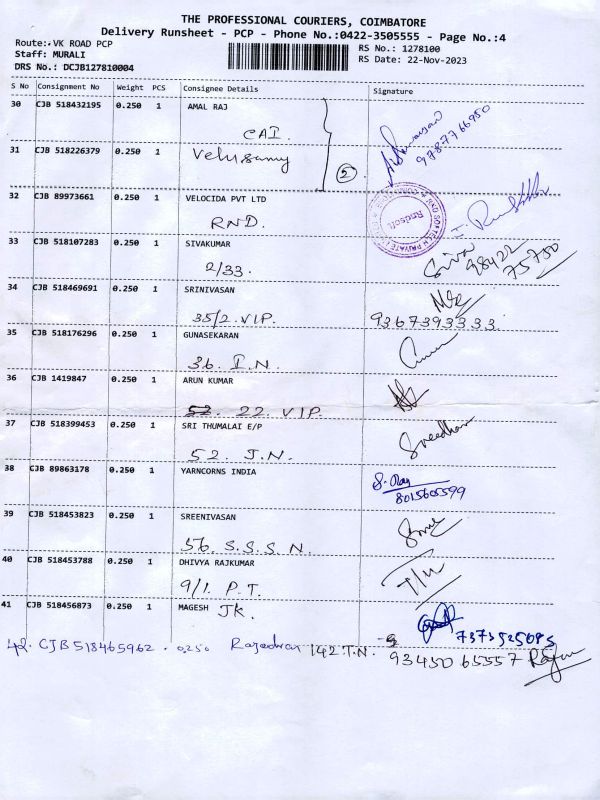 THE PROFESSIONAL COURIERS, COIMBATORE
Delivery Runsheet - PCP - Phone No.:0422-3505555 - Page No.:4
Route:- VK ROAD PCP
Staff: MURALI
DRS No.: DCJB127810004
RS No.: 1278100
RS Date: 22-Nov-2023
S No Consignment No Weight PCS Consignee Details Signature
30 CJB 518432195 0.250 1 AMAL RAJ
CAI.
9787766950
31 CJB 518226379 0.250 1 Velusamy
5
32 CJB 89973661 0.250 1 VELOCIDA PVT LTD
RND.
33 CJB 518107283 0.250 1 SIVAKUMAR
2/33.
Siva 98422 75750
34 CJB 518469691 0.250 1 SRINIVASAN
35/2. VIP. 9367393333
35 CJB 518176296 0.250 1 GUNASEKARAN
36. I.N.
36 CJB 1419847 0.250 1 ARUN KUMAR
52. 22. VIP.
37 CJB 518399453 0.250 1 SRI THUMALAI E/P
52. J.N. Sreedhar
38 CJB 89863178 0.250 1 YARNCORNS INDIA
8015605599
39 CJB 518453823 0.250 1 SREENIVASAN
56. S.S.S.N.
40 CJB 518453788 0.250 1 DHIVYA RAJKUMAR
9/1. P.T.
41 CJB 518456873 0.250 1 MAGESH JK.
7373525695
42. CJB 518465962. 0.250 142 T.N. 93450 65557